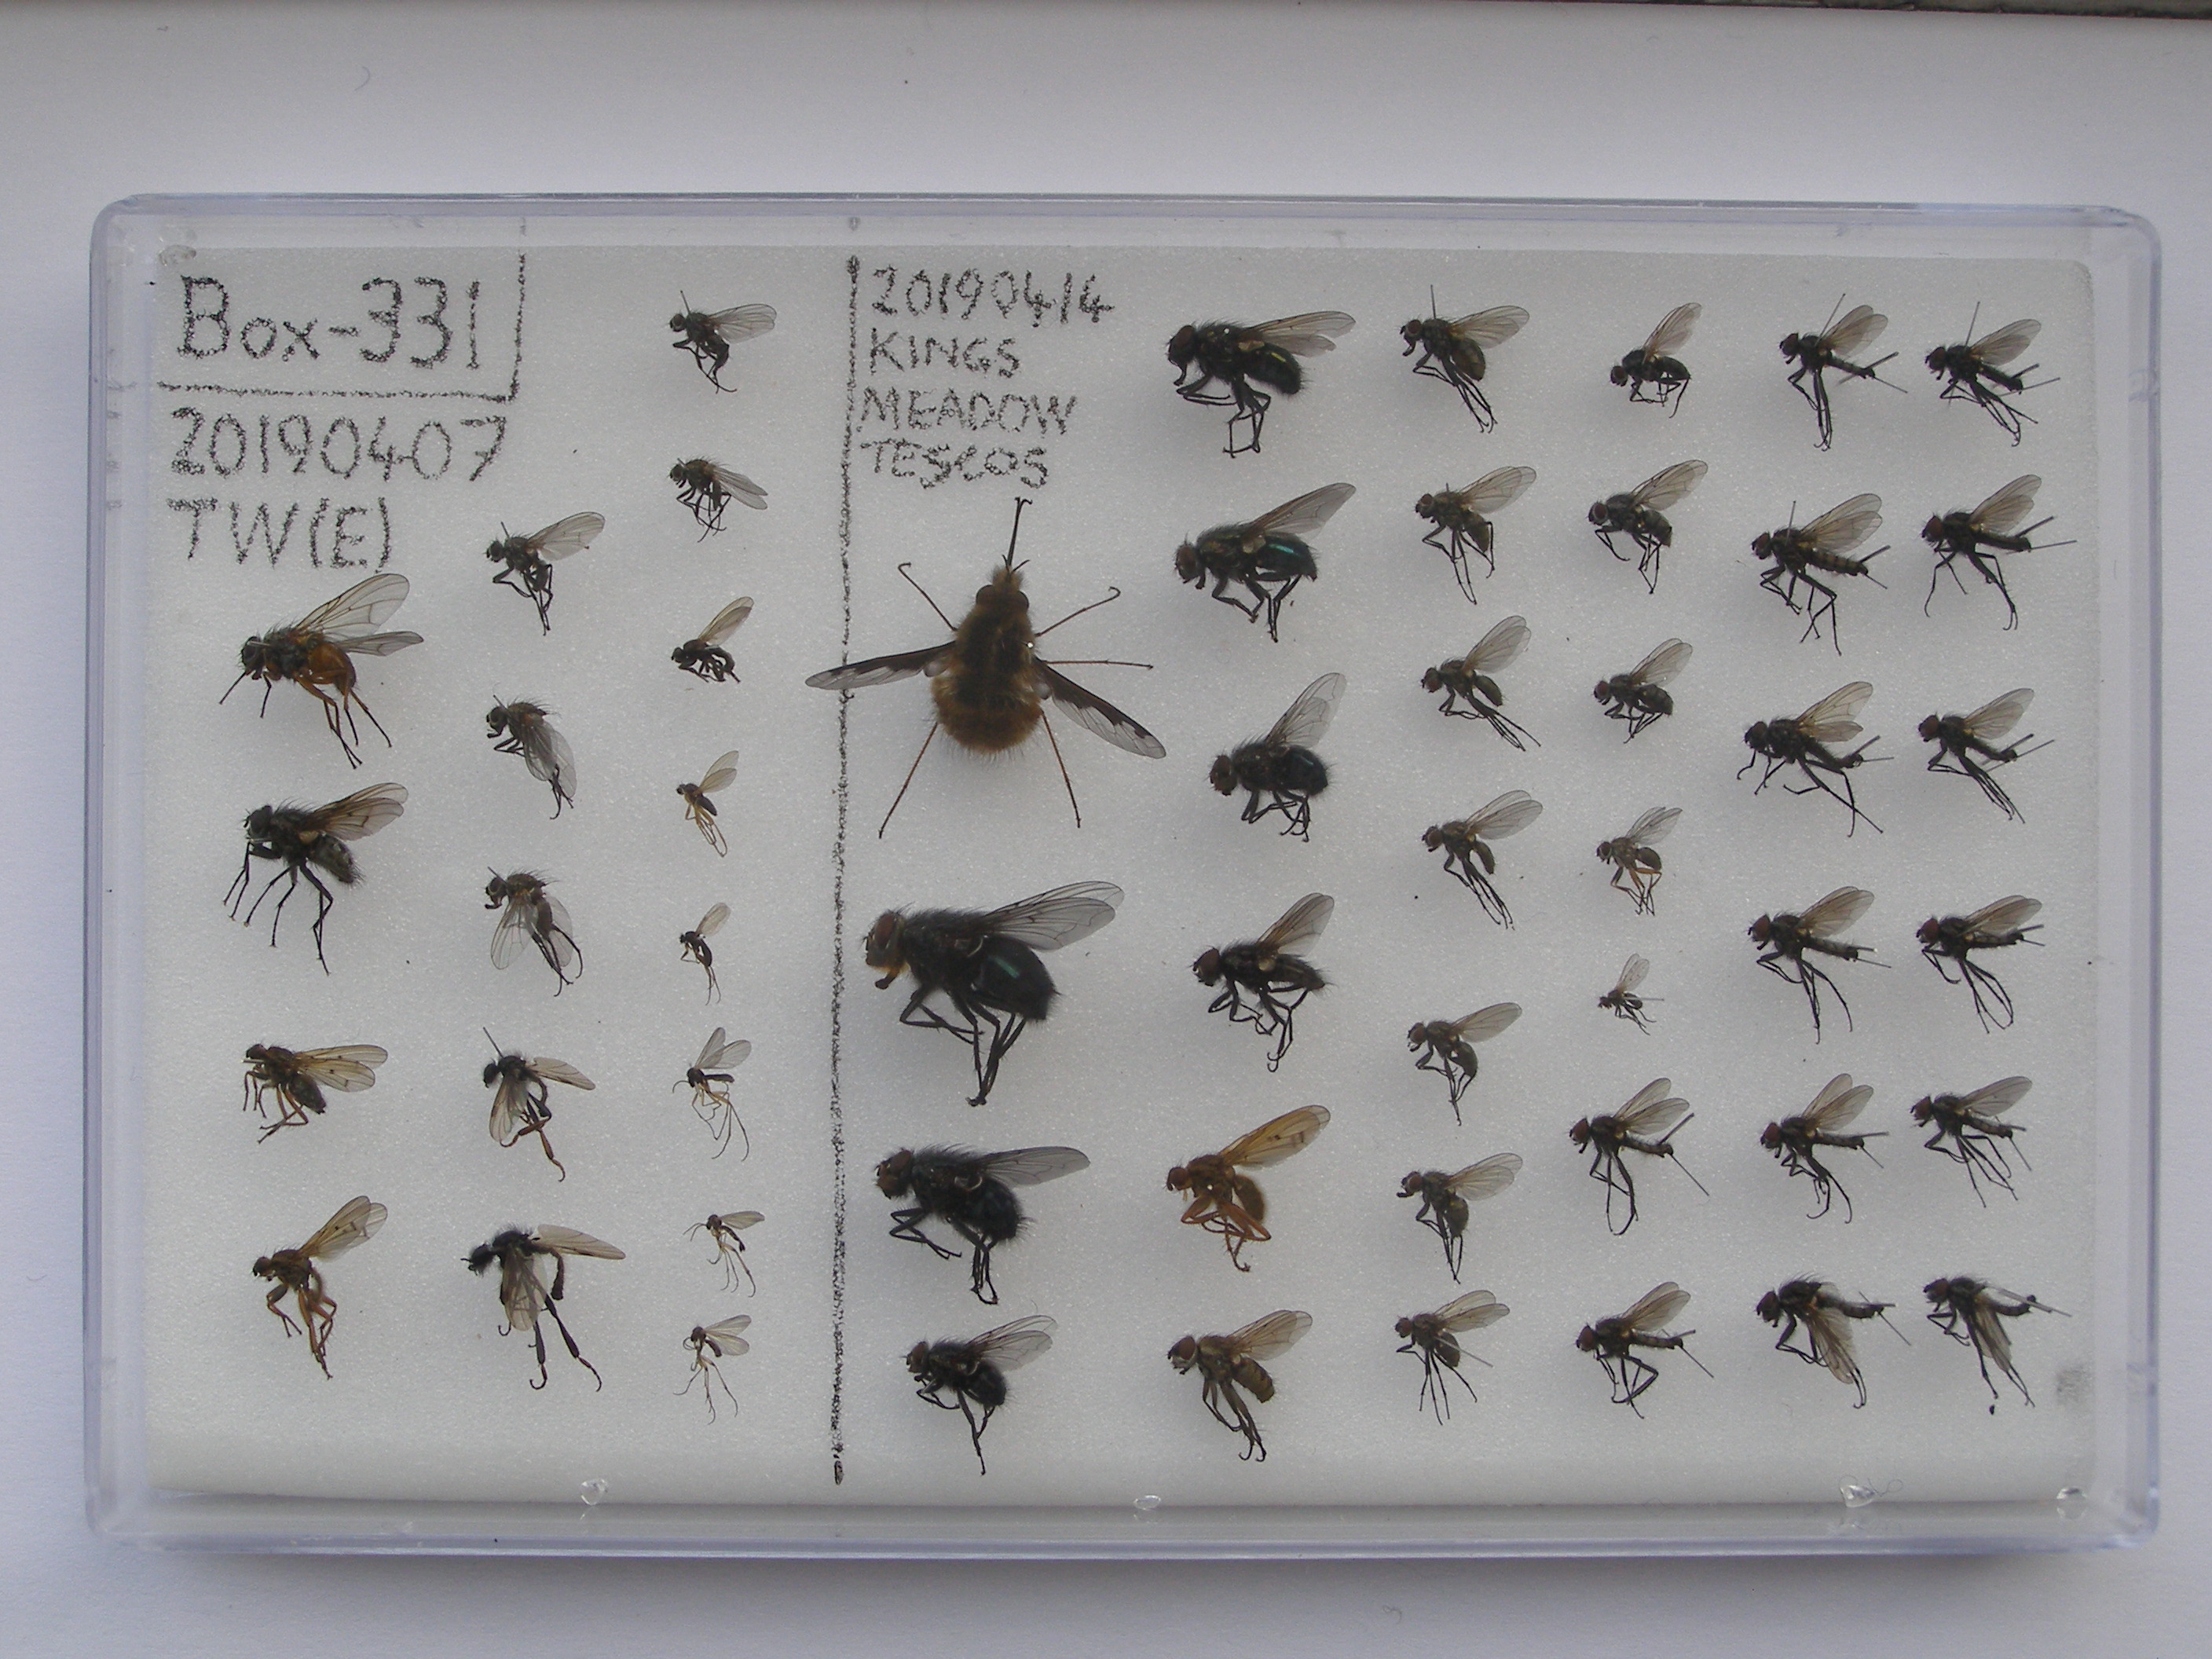 Box-331
20190407
TW(E)
20190414
KINGS
MEADOW
TESCOS